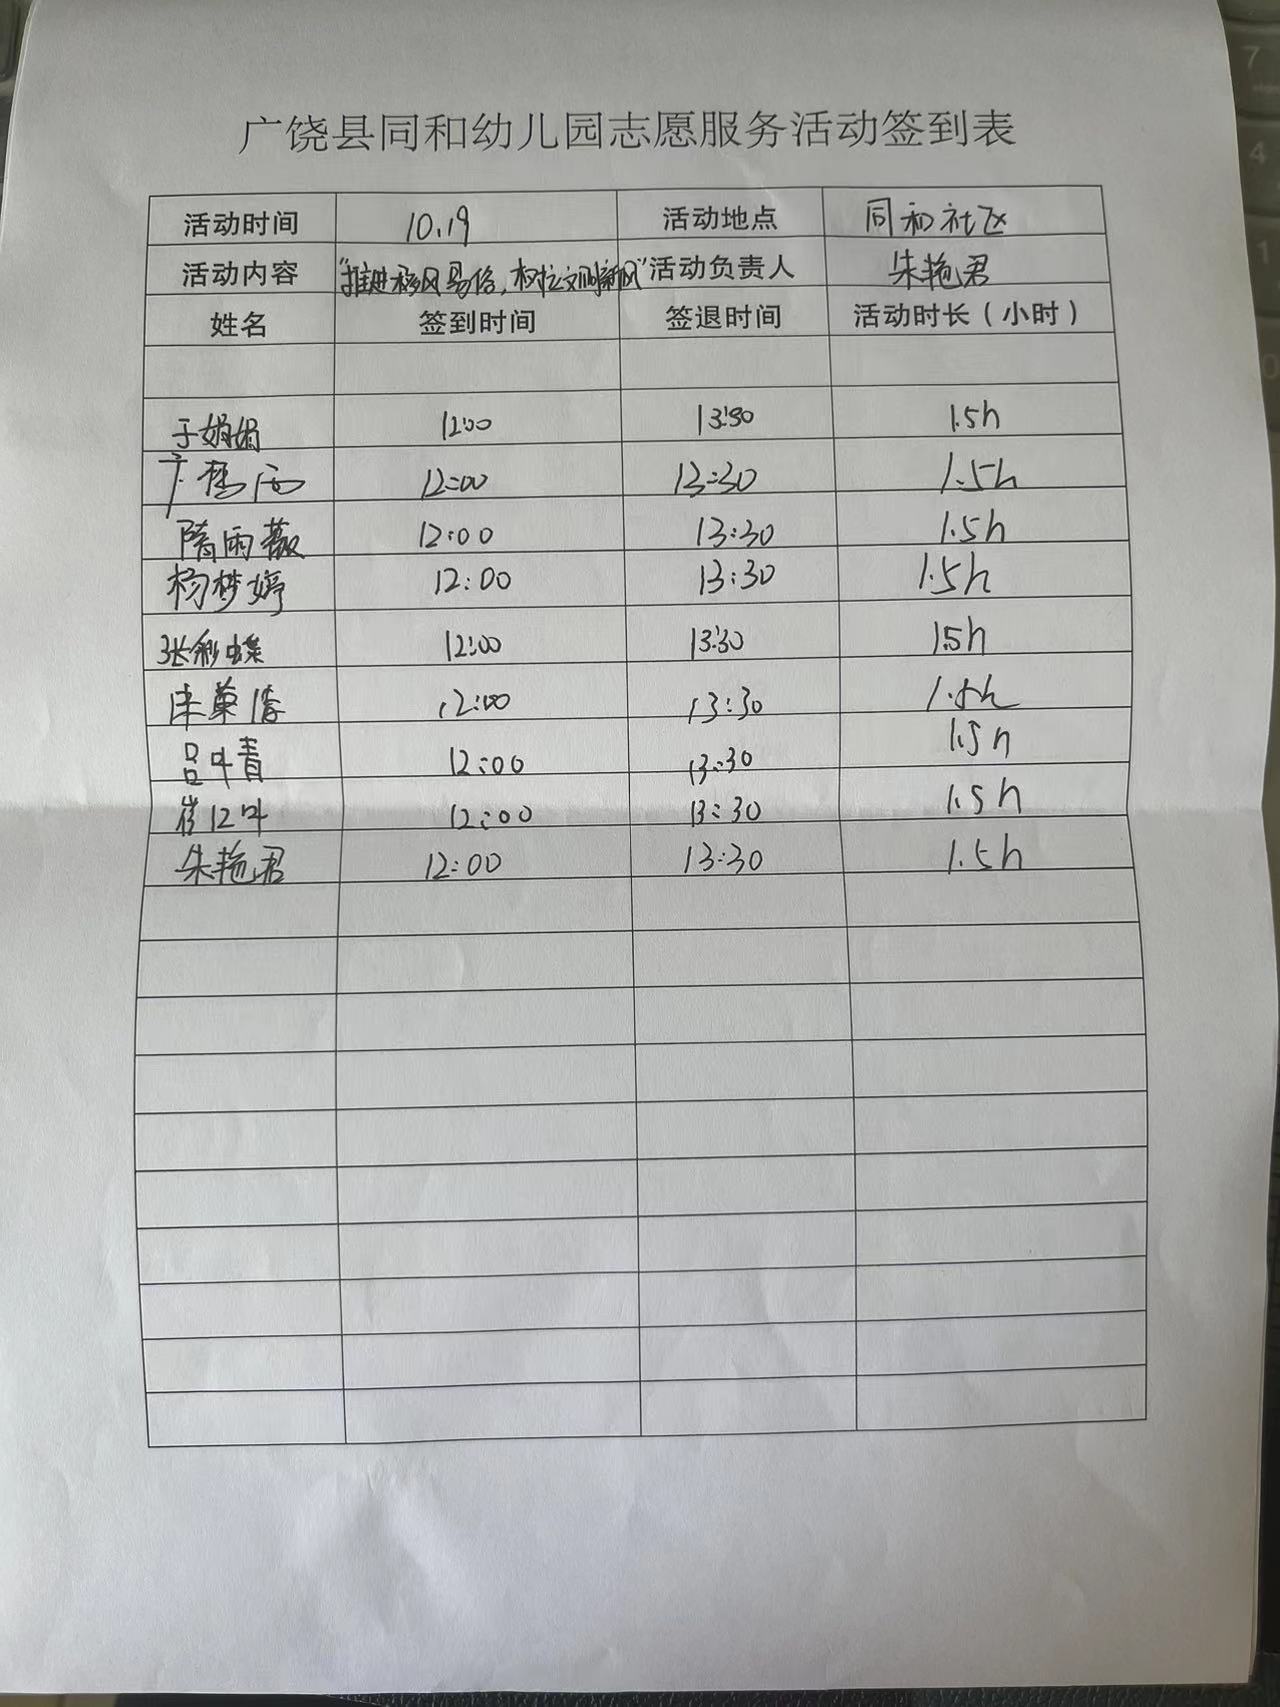 广饶县同和幼儿园志愿服务活动签到表
活动时间 10.19 活动地点 同和社区
活动内容 "推进移风易俗，树立文明新风" 活动负责人 朱艳君
姓名 签到时间 签退时间 活动时长（小时）
于娟娟 12:00 13:30 1.5h
12:00 13:30 1.5h
隋雨薇 12:00 13:30 1.5h
杨梦婷 12:00 13:30 1.5h
张彩蝶 12:00 13:30 1.5h
12:00 13:30 1.5h
吕叶青 12:00 13:30 1.5h
崔 12:00 13:30 1.5h
朱艳君 12:00 13:30 1.5h